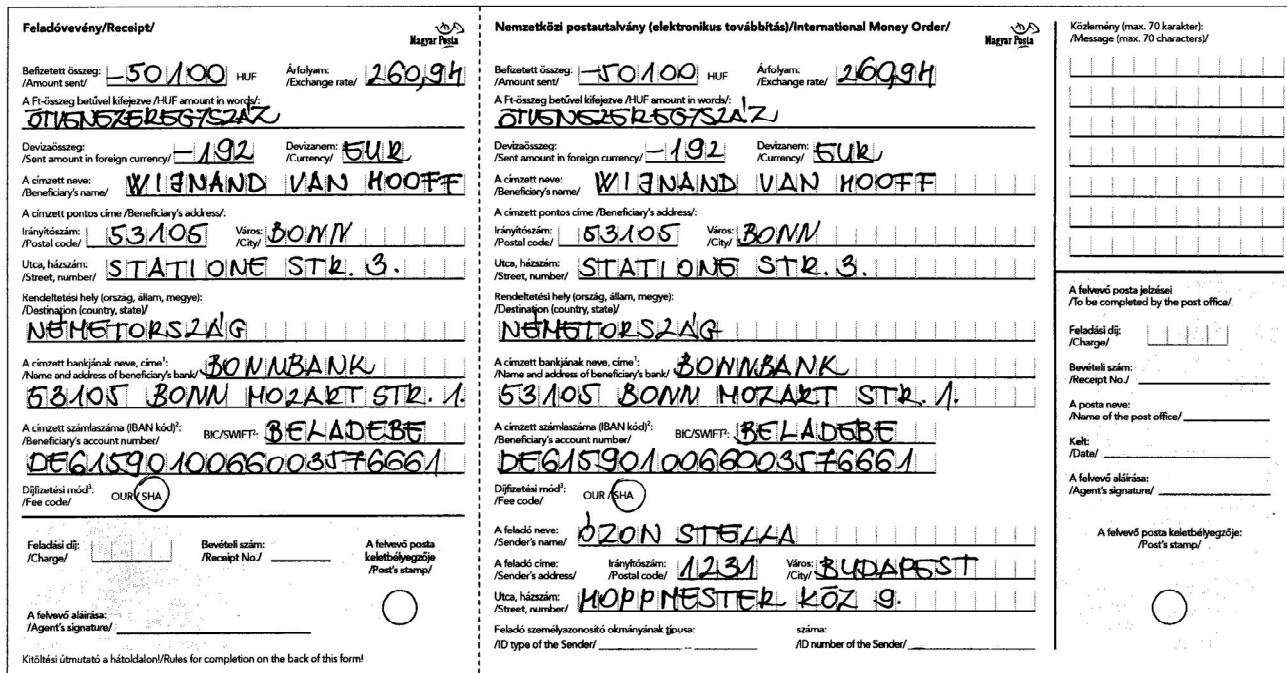 Feladóvevény/Receipt/
Magyar Posta
Befizetett összeg: /Amount sent/ -50100 HUF Árfolyam: /Exchange rate/ 260,94
A Ft-összeg betűvel kifejezve /HUF amount in words/:
ÖTVENEZEREGYSZÁZ
Devizaösszeg: /Sent amount in foreign currency/ -192 Devizanem: /Currency/ EUR
A címzett neve: /Beneficiary's name/ WIJNAND VAN HOOFF
A címzett pontos címe /Beneficiary's address/:
Irányítószám: /Postal code/ 53105 Város: /City/ BONN
Utca, házszám: /Street, number/ STATIONE STR. 3.
Rendeltetési hely (ország, állam, megye):
/Destination (country, state)/
NÉMETORSZÁG
A címzett bankjának neve, címe¹: /Name and address of beneficiary's bank/ BONNBANK
53105 BONN MOZART STR. 1.
A címzett számlaszáma (IBAN kód)²: /Beneficiary's account number/ BIC/SWIFT²: BELADEBE
DE6159010066003576661
Díjfizetési mód³: /Fee code/ OUR/SHA
Feladási díj: /Charge/
Bevételi szám: /Receipt No./
A felvevő posta keletbélyegzője /Post's stamp/
A felvevő aláírása: /Agent's signature/
Kitöltési útmutató a hátoldalon!/Rules for completion on the back of this form!
Nemzetközi postautalvány (elektronikus továbbítás)/International Money Order/
Magyar Posta
Befizetett összeg: /Amount sent/ -50100 HUF Árfolyam: /Exchange rate/ 260,94
A Ft-összeg betűvel kifejezve /HUF amount in words/:
ÖTVENEZEREGYSZÁZ
Devizaösszeg: /Sent amount in foreign currency/ -192 Devizanem: /Currency/ EUR
A címzett neve: /Beneficiary's name/ WIJNAND VAN HOOFF
A címzett pontos címe /Beneficiary's address/:
Irányítószám: /Postal code/ 53105 Város: /City/ BONN
Utca, házszám: /Street, number/ STATIONE STR. 3.
Rendeltetési hely (ország, állam, megye):
/Destination (country, state)/
NÉMETORSZÁG
A címzett bankjának neve, címe¹: /Name and address of beneficiary's bank/ BONNBANK
53105 BONN MOZART STR. 1.
A címzett számlaszáma (IBAN kód)²: /Beneficiary's account number/ BIC/SWIFT²: BELADEBE
DE61590100660035766661
Díjfizetési mód³: /Fee code/ OUR/SHA
A feladó neve: /Sender's name/ ÓZON STELLA
A feladó címe: /Sender's address/ Irányítószám: /Postal code/ 1231 Város: /City/ BUDAPEST
Utca, házszám: /Street, number/ HOPPMESTER KÖZ 9.
Feladó személyazonosító okmányának típusa: /ID type of the Sender/ száma: /ID number of the Sender/
Közlemény (max. 70 karakter):
/Message (max. 70 characters)/
A felvevő posta jelzései
/To be completed by the post office/
Feladási díj:
/Charge/
Bevételi szám:
/Receipt No./
A posta neve:
/Name of the post office/
Kelt:
/Date/
A felvevő aláírása:
/Agent's signature/
A felvevő posta keletbélyegzője:
/Post's stamp/